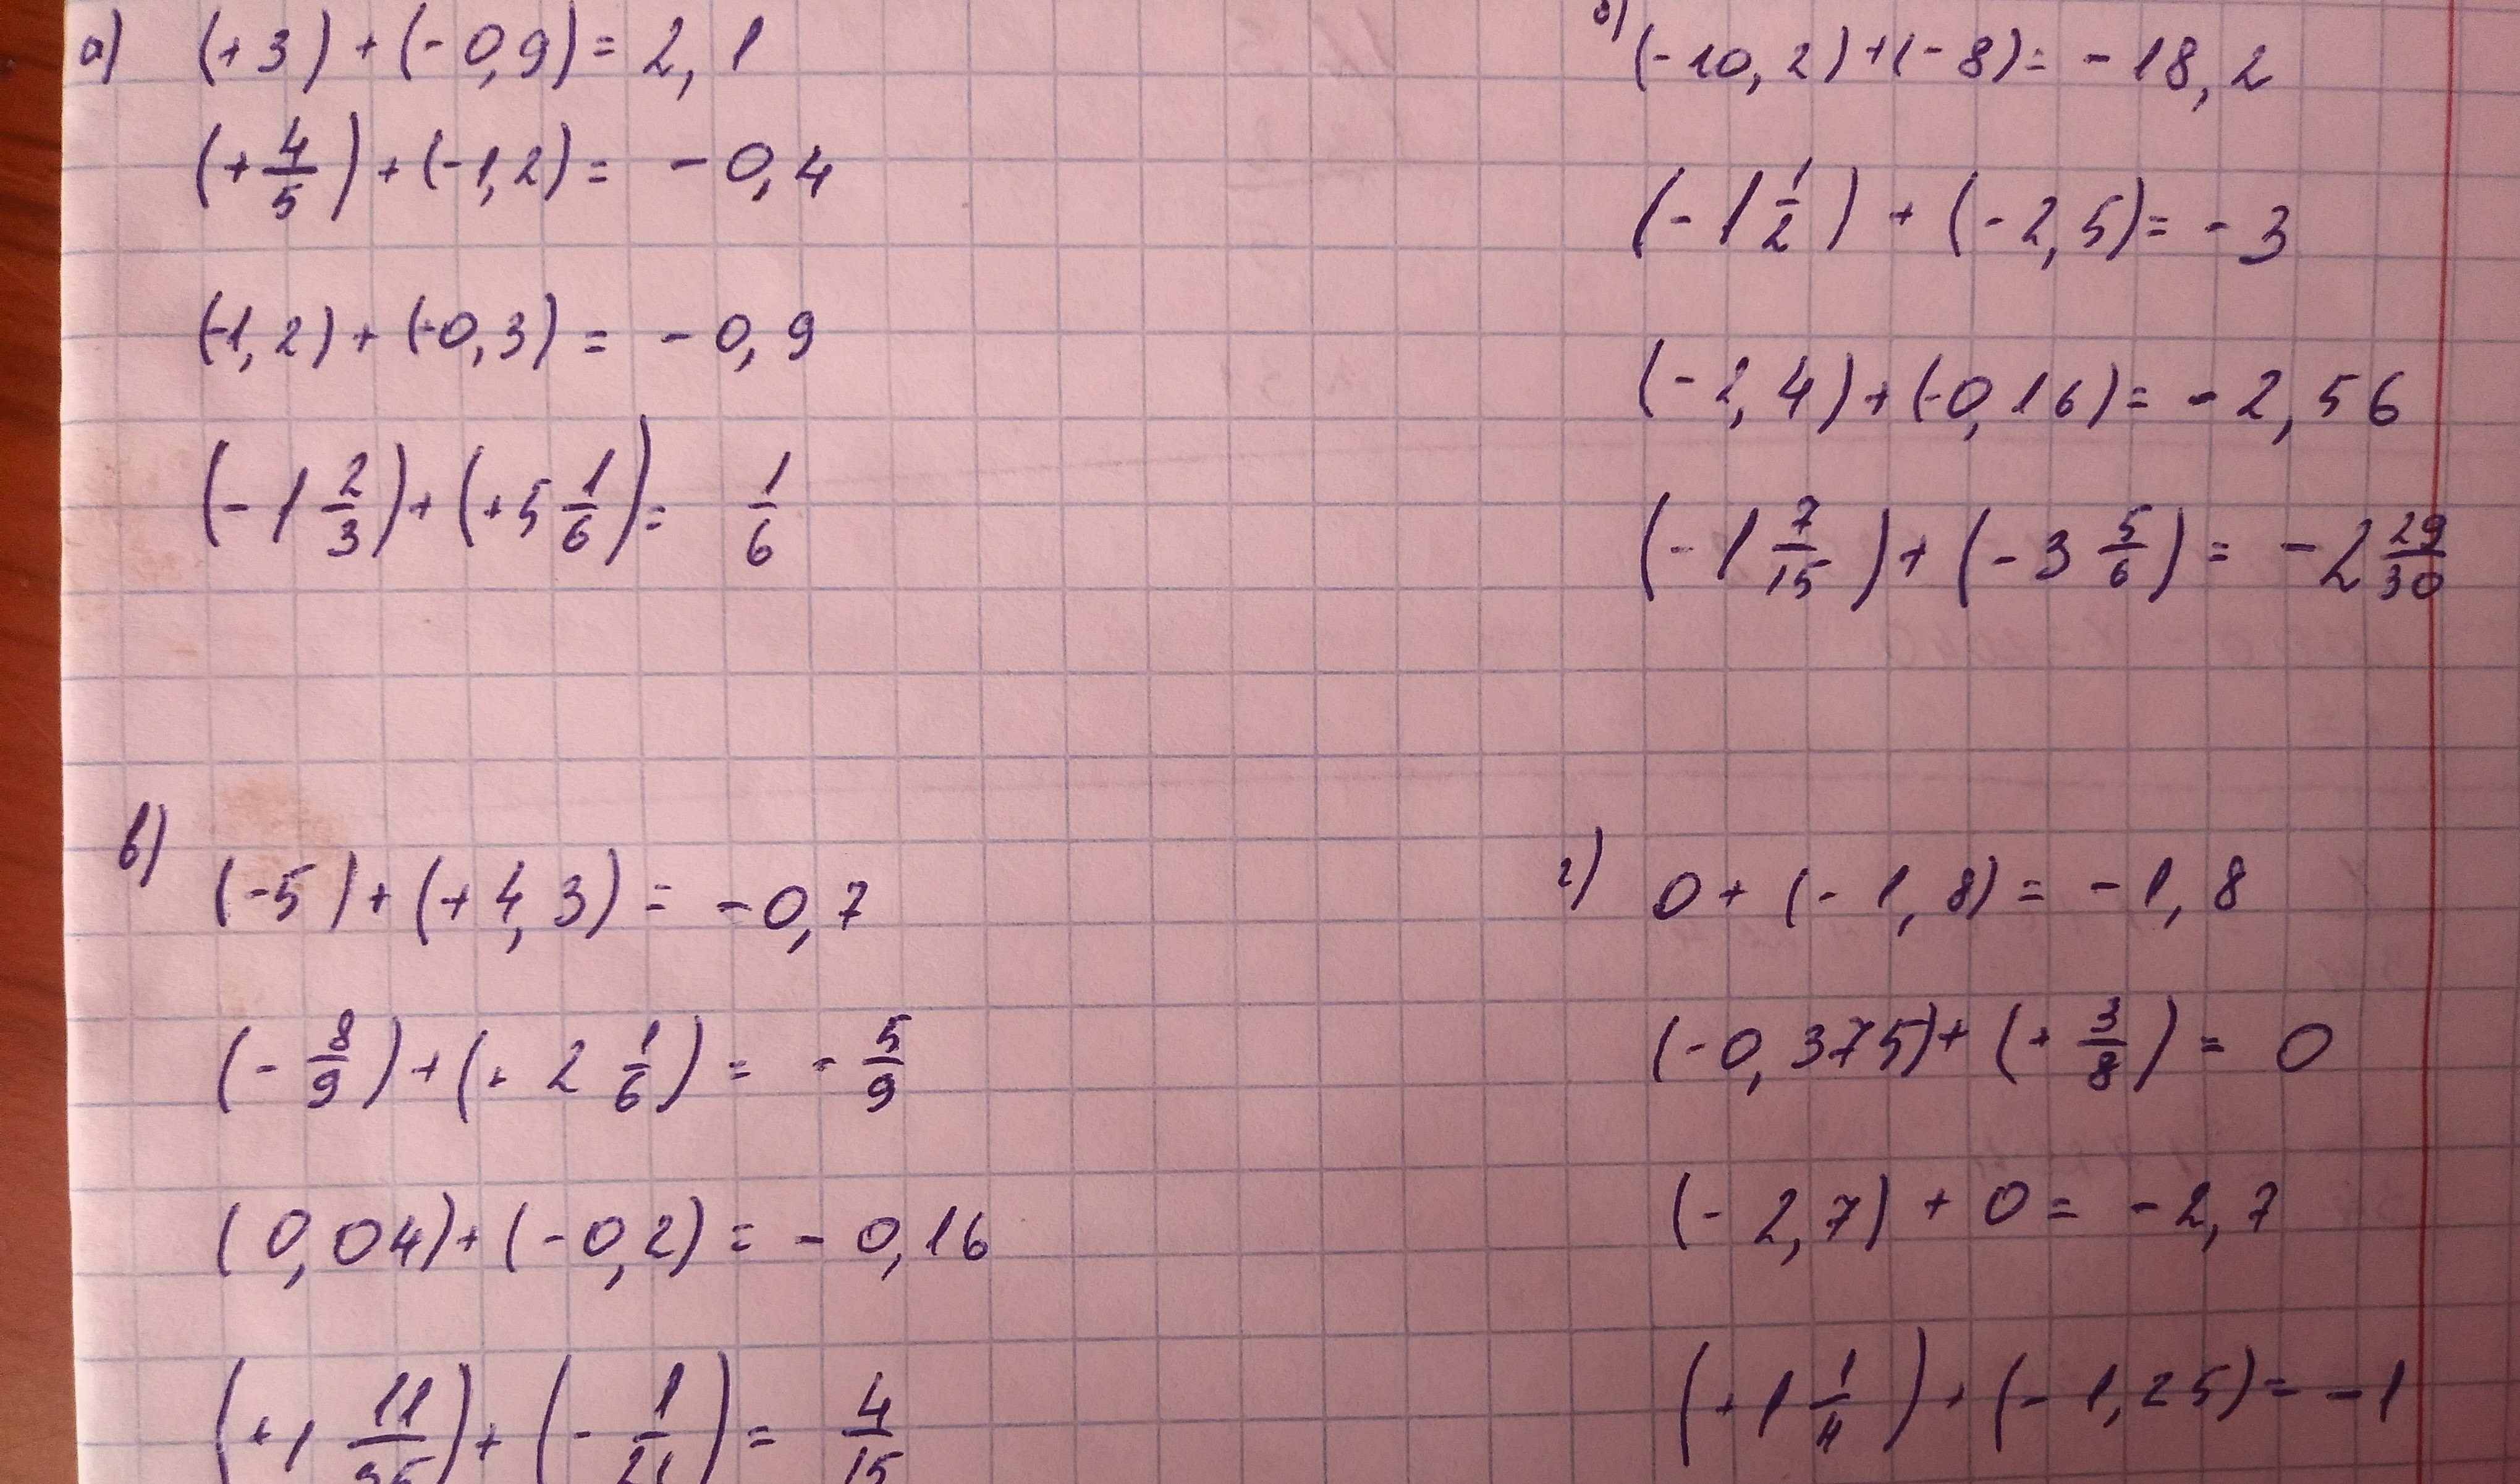 а) (+3) + (-0,9) = 2,1
(+4/5) + (-1,2) = -0,4
(-1,2) + (-0,3) = -0,9
(-1 2/3) + (+5 1/6) = 1/6
б) (-10,2) + (-8) = -18,2
(-1 1/2) + (-2,5) = -3
(-2,4) + (-0,16) = -2,56
(-1 7/15) + (-3 5/6) = -2 29/30
в) (-5) + (+4,3) = -0,7
(-8/9) + (- 2 1/6) = -5/9
(0,04) + (-0,2) = -0,16
(+1 11/35) + (-1/21) = 4/15
г) 0 + (-1,8) = -1,8
(-0,375) + (+3/8) = 0
(-2,7) + 0 = -2,7
(+1 1/4) + (-1,25) = -1